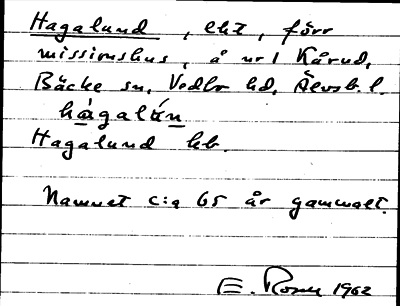 Hagalund, lht, förr
missionshus, å nr 1 Kårud,
Bäcke sn, Vedbo hd, Älvsb. l.
hàgalún
Hagalund hb.
Namnet c:a 65 år gammalt.
E. Rosm 1962